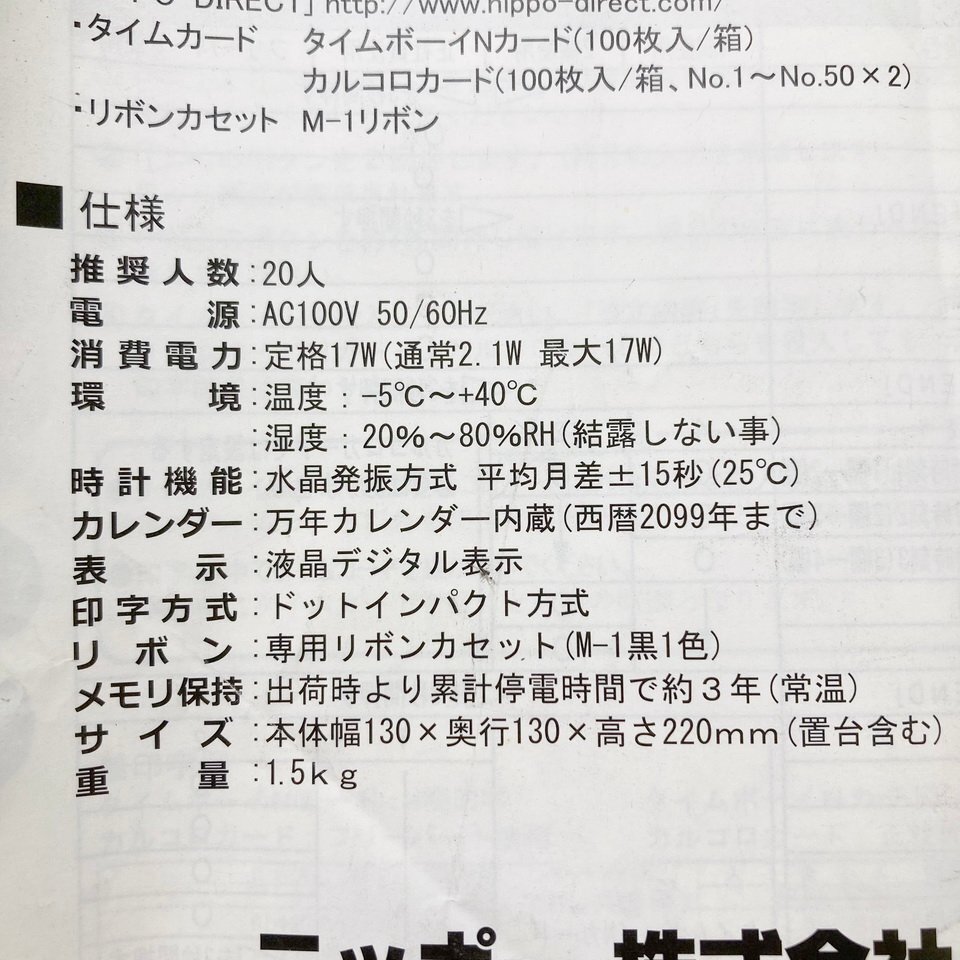 DIRECT」 http://www.nippo-direct.com/
・タイムカード タイムボーイNカード(100枚入/箱)
カルコロカード(100枚入/箱、No.1～No.50×2)
・リボンカセット M-1リボン
■ 仕様
推奨人数:20人
電源:AC100V 50/60Hz
消費電力:定格17W(通常2.1W 最大17W)
環境:温度:-5℃～+40℃
:湿度:20%～80%RH(結露しない事)
時計機能:水晶発振方式 平均月差±15秒(25℃)
カレンダー:万年カレンダー内蔵(西暦2099年まで)
表示:液晶デジタル表示
印字方式:ドットインパクト方式
リボン:専用リボンカセット(M-1黒1色)
メモリ保持:出荷時より累計停電時間で約３年(常温)
サイズ:本体幅130×奥行130×高さ220ｍｍ(置台含む)
重量:1.5ｋｇ
ニッポー株式会社